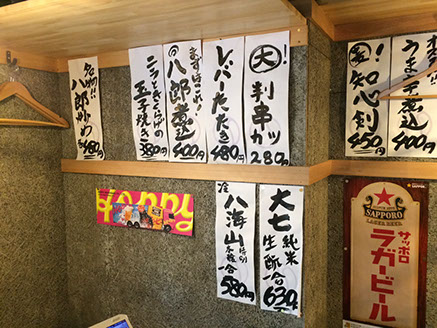 名物!!
八郎炒め
480円
ニラときくらげの
玉子焼き
380円
まずはこれ!
八郎煮込
400円
レバーたたき
480円
大!
判串カツ
280円
知心剣
450円
うま辛煮込
400円
Hoppy
八海山
一合
580円
大七
純米
生酛
一合
630円
SAPPORO
LAGER BEER
サッポロ
ラガービール